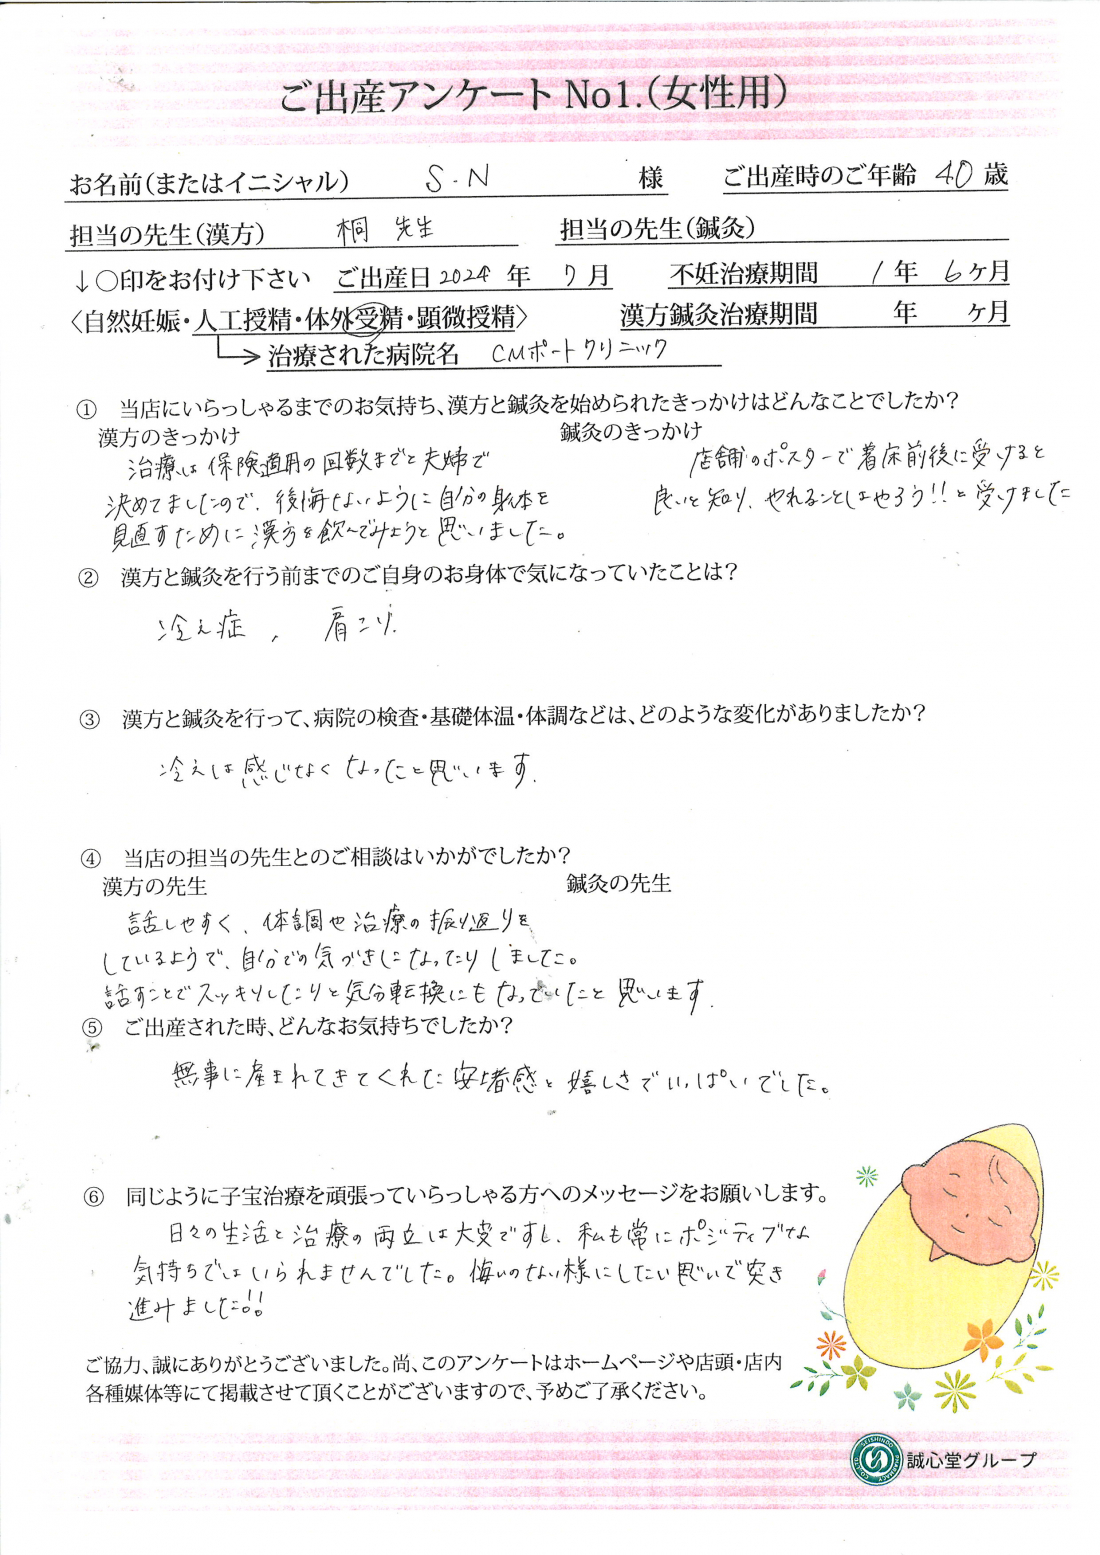 ご出産アンケート No1.(女性用)
お名前(またはイニシャル) S.N 様 ご出産時のご年齢 40 歳
担当の先生(漢方) 桐 先生 担当の先生(鍼灸)
↓○印をお付け下さい ご出産日 2024 年 7 月 不妊治療期間 1 年 6 ヶ月
〈自然妊娠・人工授精・体外受精・顕微授精〉 漢方鍼灸治療期間 年 ヶ月
治療された病院名 CMポートクリニック
① 当店にいらっしゃるまでのお気持ち、漢方と鍼灸を始められたきっかけはどんなことでしたか?
漢方のきっかけ 鍼灸のきっかけ
治療は保険適用の回数までと夫婦で
決めてましたので、後悔しないように自分の身体を
見直すために漢方を飲んでみようと思いました。
店舗のポスターで着床前後に受けると
良いと知り、やれることはやろう!!と受けました
② 漢方と鍼灸を行う前までのご自身のお身体で気になっていたことは?
冷え症 , 肩こり.
③ 漢方と鍼灸を行って、病院の検査・基礎体温・体調などは、どのような変化がありましたか?
冷えは感じなくなったと思います.
④ 当店の担当の先生とのご相談はいかがでしたか?
漢方の先生 鍼灸の先生
話しやすく、体調や治療の振り返りを
しているようで、自分での気づきになったりしました。
話すことでスッキリしたりと気分転換にもなっていたと思います.
⑤ ご出産された時、どんなお気持ちでしたか?
無事に産まれてきてくれた安堵感と嬉しさでいっぱいでした。
⑥ 同じように子宝治療を頑張っていらっしゃる方へのメッセージをお願いします。
日々の生活と治療の両立は大変ですし、私も常にポジティブな
気持ちではいられませんでした。悔いのない様にしたい思いで突き
進みました!!
ご協力、誠にありがとうございました。尚、このアンケートはホームページや店頭・店内
各種媒体等にて掲載させて頂くことがございますので、予めご了承ください。
誠心堂グループ